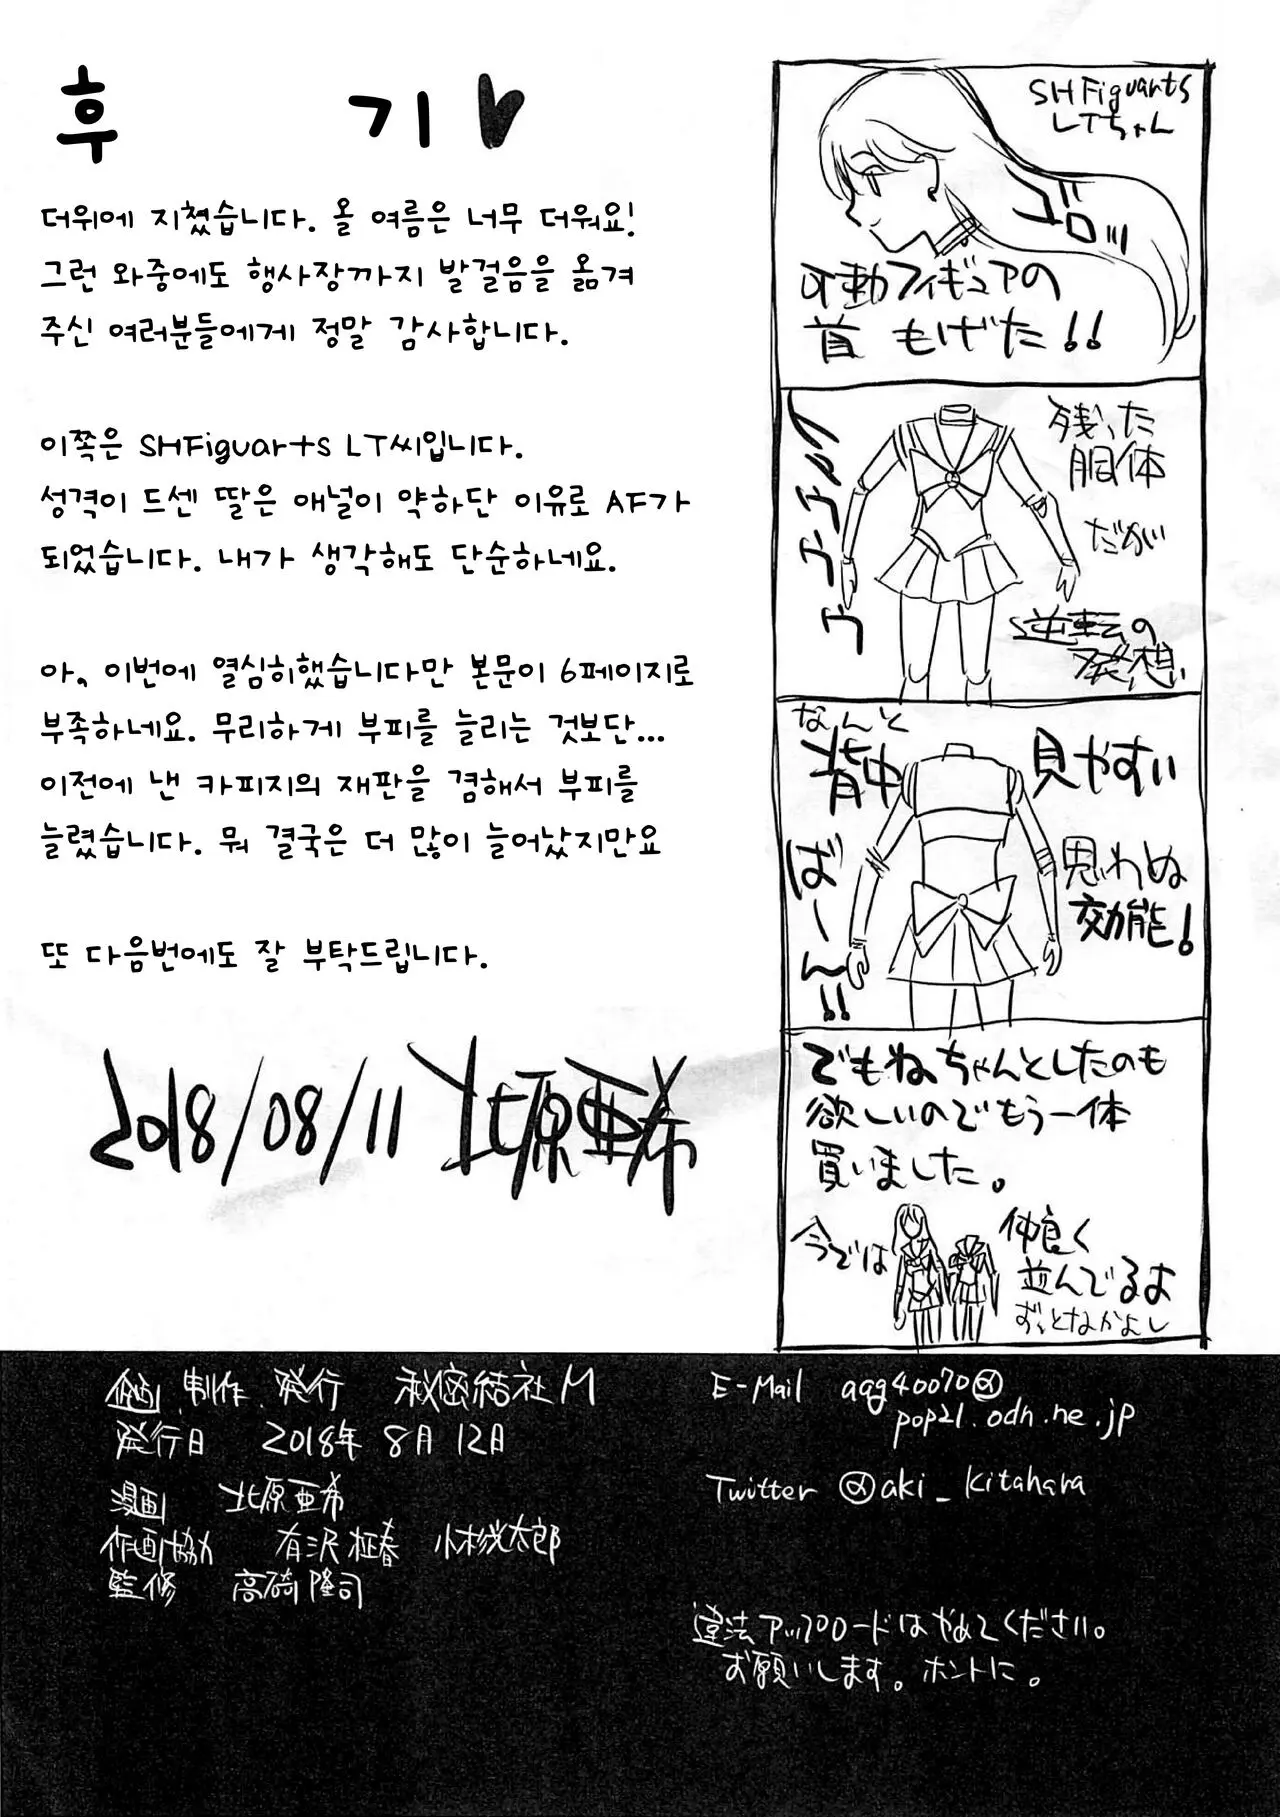 후기
더위에 지쳤습니다. 올 여름은 너무 더워요!
그런 와중에도 행사장까지 발걸음을 옮겨
주신 여러분들에게 정말 감사합니다.
이쪽은 SHFiguarts LT씨입니다.
성격이 드센 딸은 애널이 약하단 이유로 AF가
되었습니다. 내가 생각해도 단순하네요.
아, 이번에 열심히했습니다만 본문이 6페이지로
부족하네요. 무리하게 부피를 늘리는 것보단...
이전에 낸 카피지의 재판을 겸해서 부피를
늘렸습니다. 뭐 결국은 더 많이 늘어났지만요
또 다음번에도 잘 부탁드립니다.
2018/08/11 北原亜希
SHFiguarts
LTちゃん
ゴロッ
可動フィギュアの
首 もげた!!
残った
胴体
だが
逆転の
発想
なんと
背中
見やすい
ばーん!!
思わぬ
効能!
でもね、ちゃんとしたのも
欲しいのでもう一体
買いました。
今では
仲良く
並んでるよ
ずっとなかよし
企画 制作 発行 秘密結社M
発行日 2018年 8月 12日
漫画 北原亜希
作画協力 有沢 柾春 小杉光太郎
監修 高崎隆司
E-Mail aqg40070@
pop21.odn.ne.jp
Twitter @aki_kitahara
違法アップロードはやめてください。
お願いします。ホントに。